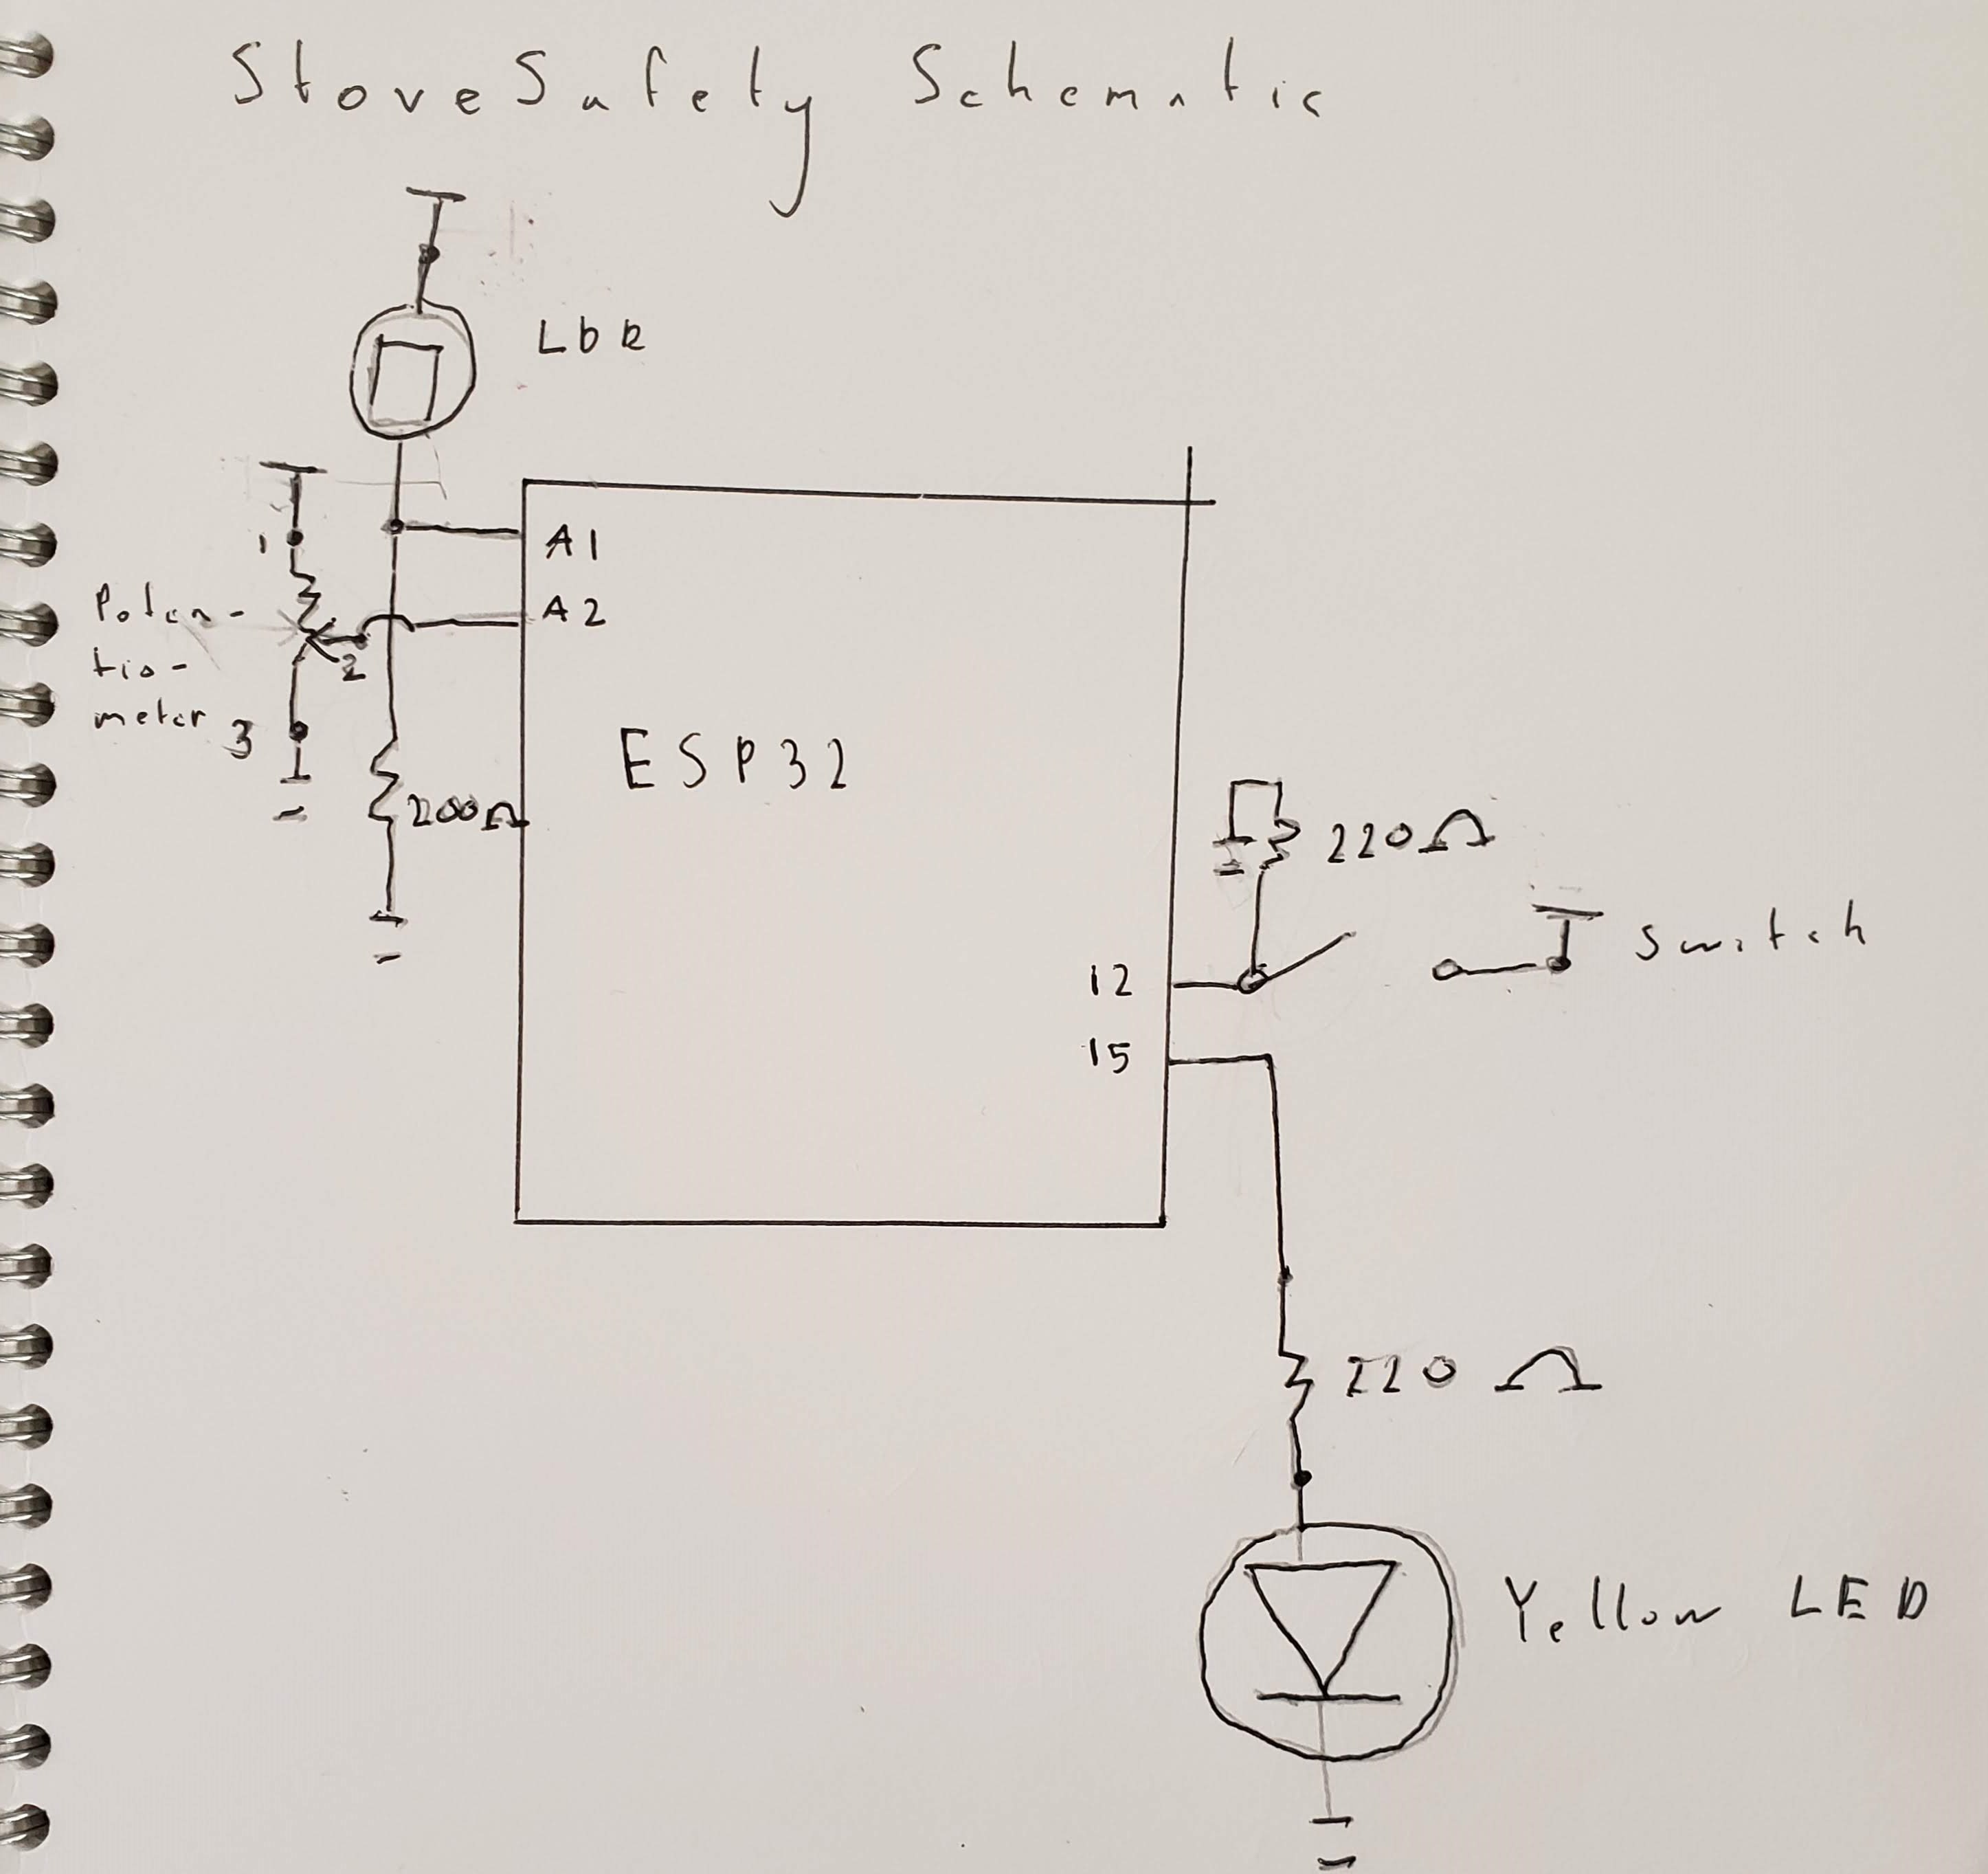 StoveSafety Schematic
LDR
A1
A2
1
Poten-
tio-
meter
2
3
ESP32
200Ω
220Ω
Switch
12
15
220 Ω
Yellow LED